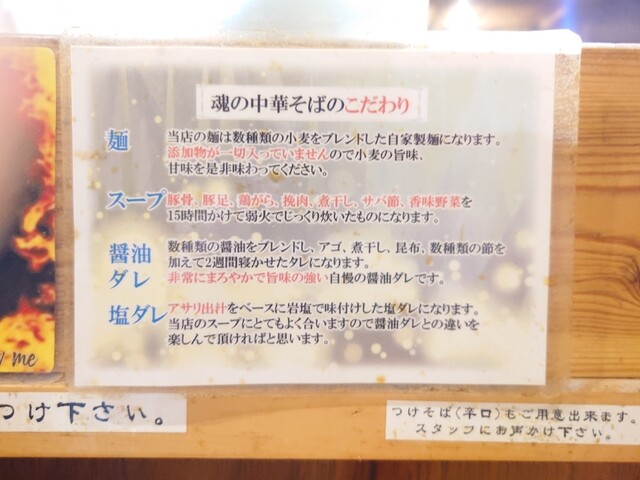 魂の中華そばのこだわり
麺
当店の麺は数種類の小麦をブレンドした自家製麺になります。
添加物が一切入っていませんので小麦の旨味、
甘味を是非味わってください。
スープ
豚骨、豚足、鶏がら、挽肉、煮干し、サバ節、香味野菜を
15時間かけて弱火でじっくり炊いたものになります。
醤油
ダレ
数種類の醤油をブレンドし、アゴ、煮干し、昆布、数種類の節を
加えて2週間寝かせたタレになります。
非常にまろやかで旨味の強い自慢の醤油ダレです。
塩ダレ
アサリ出汁をベースに岩塩で味付けした塩ダレになります。
当店のスープにとてもよく合いますので醤油ダレとの違いを
楽しんで頂ければと思います。
me
つけ下さい。
つけそば(辛口)もご用意出来ます。
スタッフにお声かけ下さい。